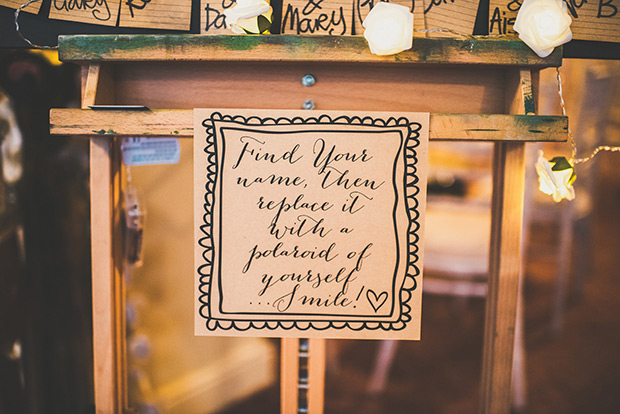 & Mary
Find Your
name, then
replace it
with a
polaroid of
yourself
...Smile!